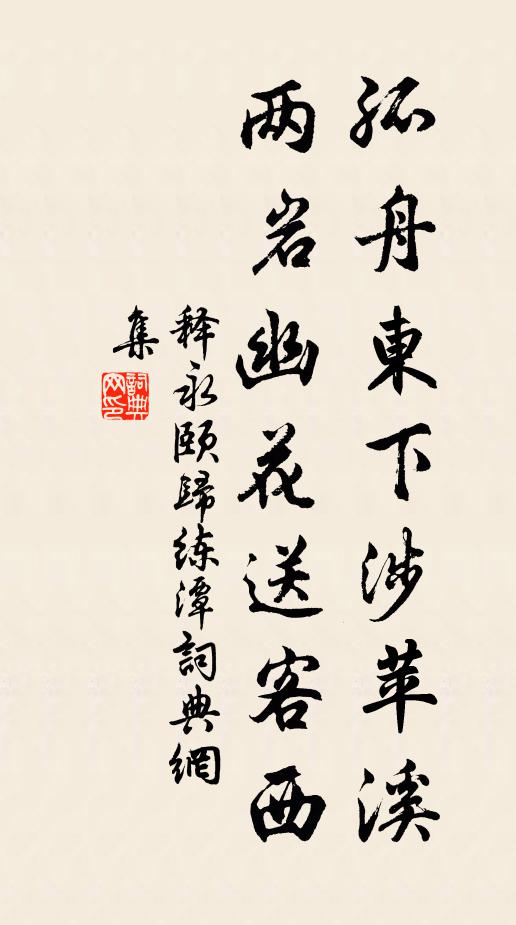 孤舟東下涉苹溪
两岩幽花送客西
释永颐歸练潭詞典網
集
詞典网印